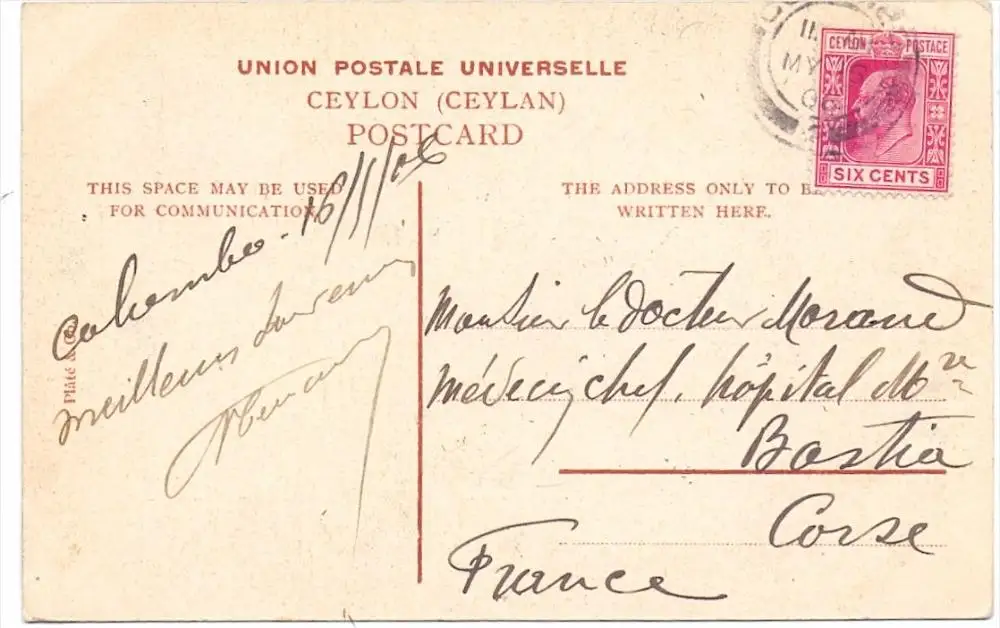 UNION POSTALE UNIVERSELLE
CEYLON (CEYLAN)
POSTCARD
THIS SPACE MAY BE USED
FOR COMMUNICATION.
THE ADDRESS ONLY TO BE
WRITTEN HERE.
CEYLON POSTAGE
SIX CENTS
11
MY
06
Colombo - 16/5/06
meilleurs souvenirs
Plâté &
Monsieur le docteur Morand
Médecin chef, hôpital Mre
Bastia
Corse
France